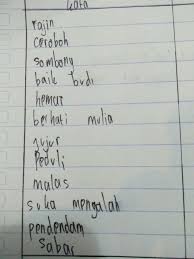 kata
rajin
ceroboh
sombong
baik budi
hemat
berhati mulia
jujur
peduli
malas
suka mengalah
pendendam
sabar